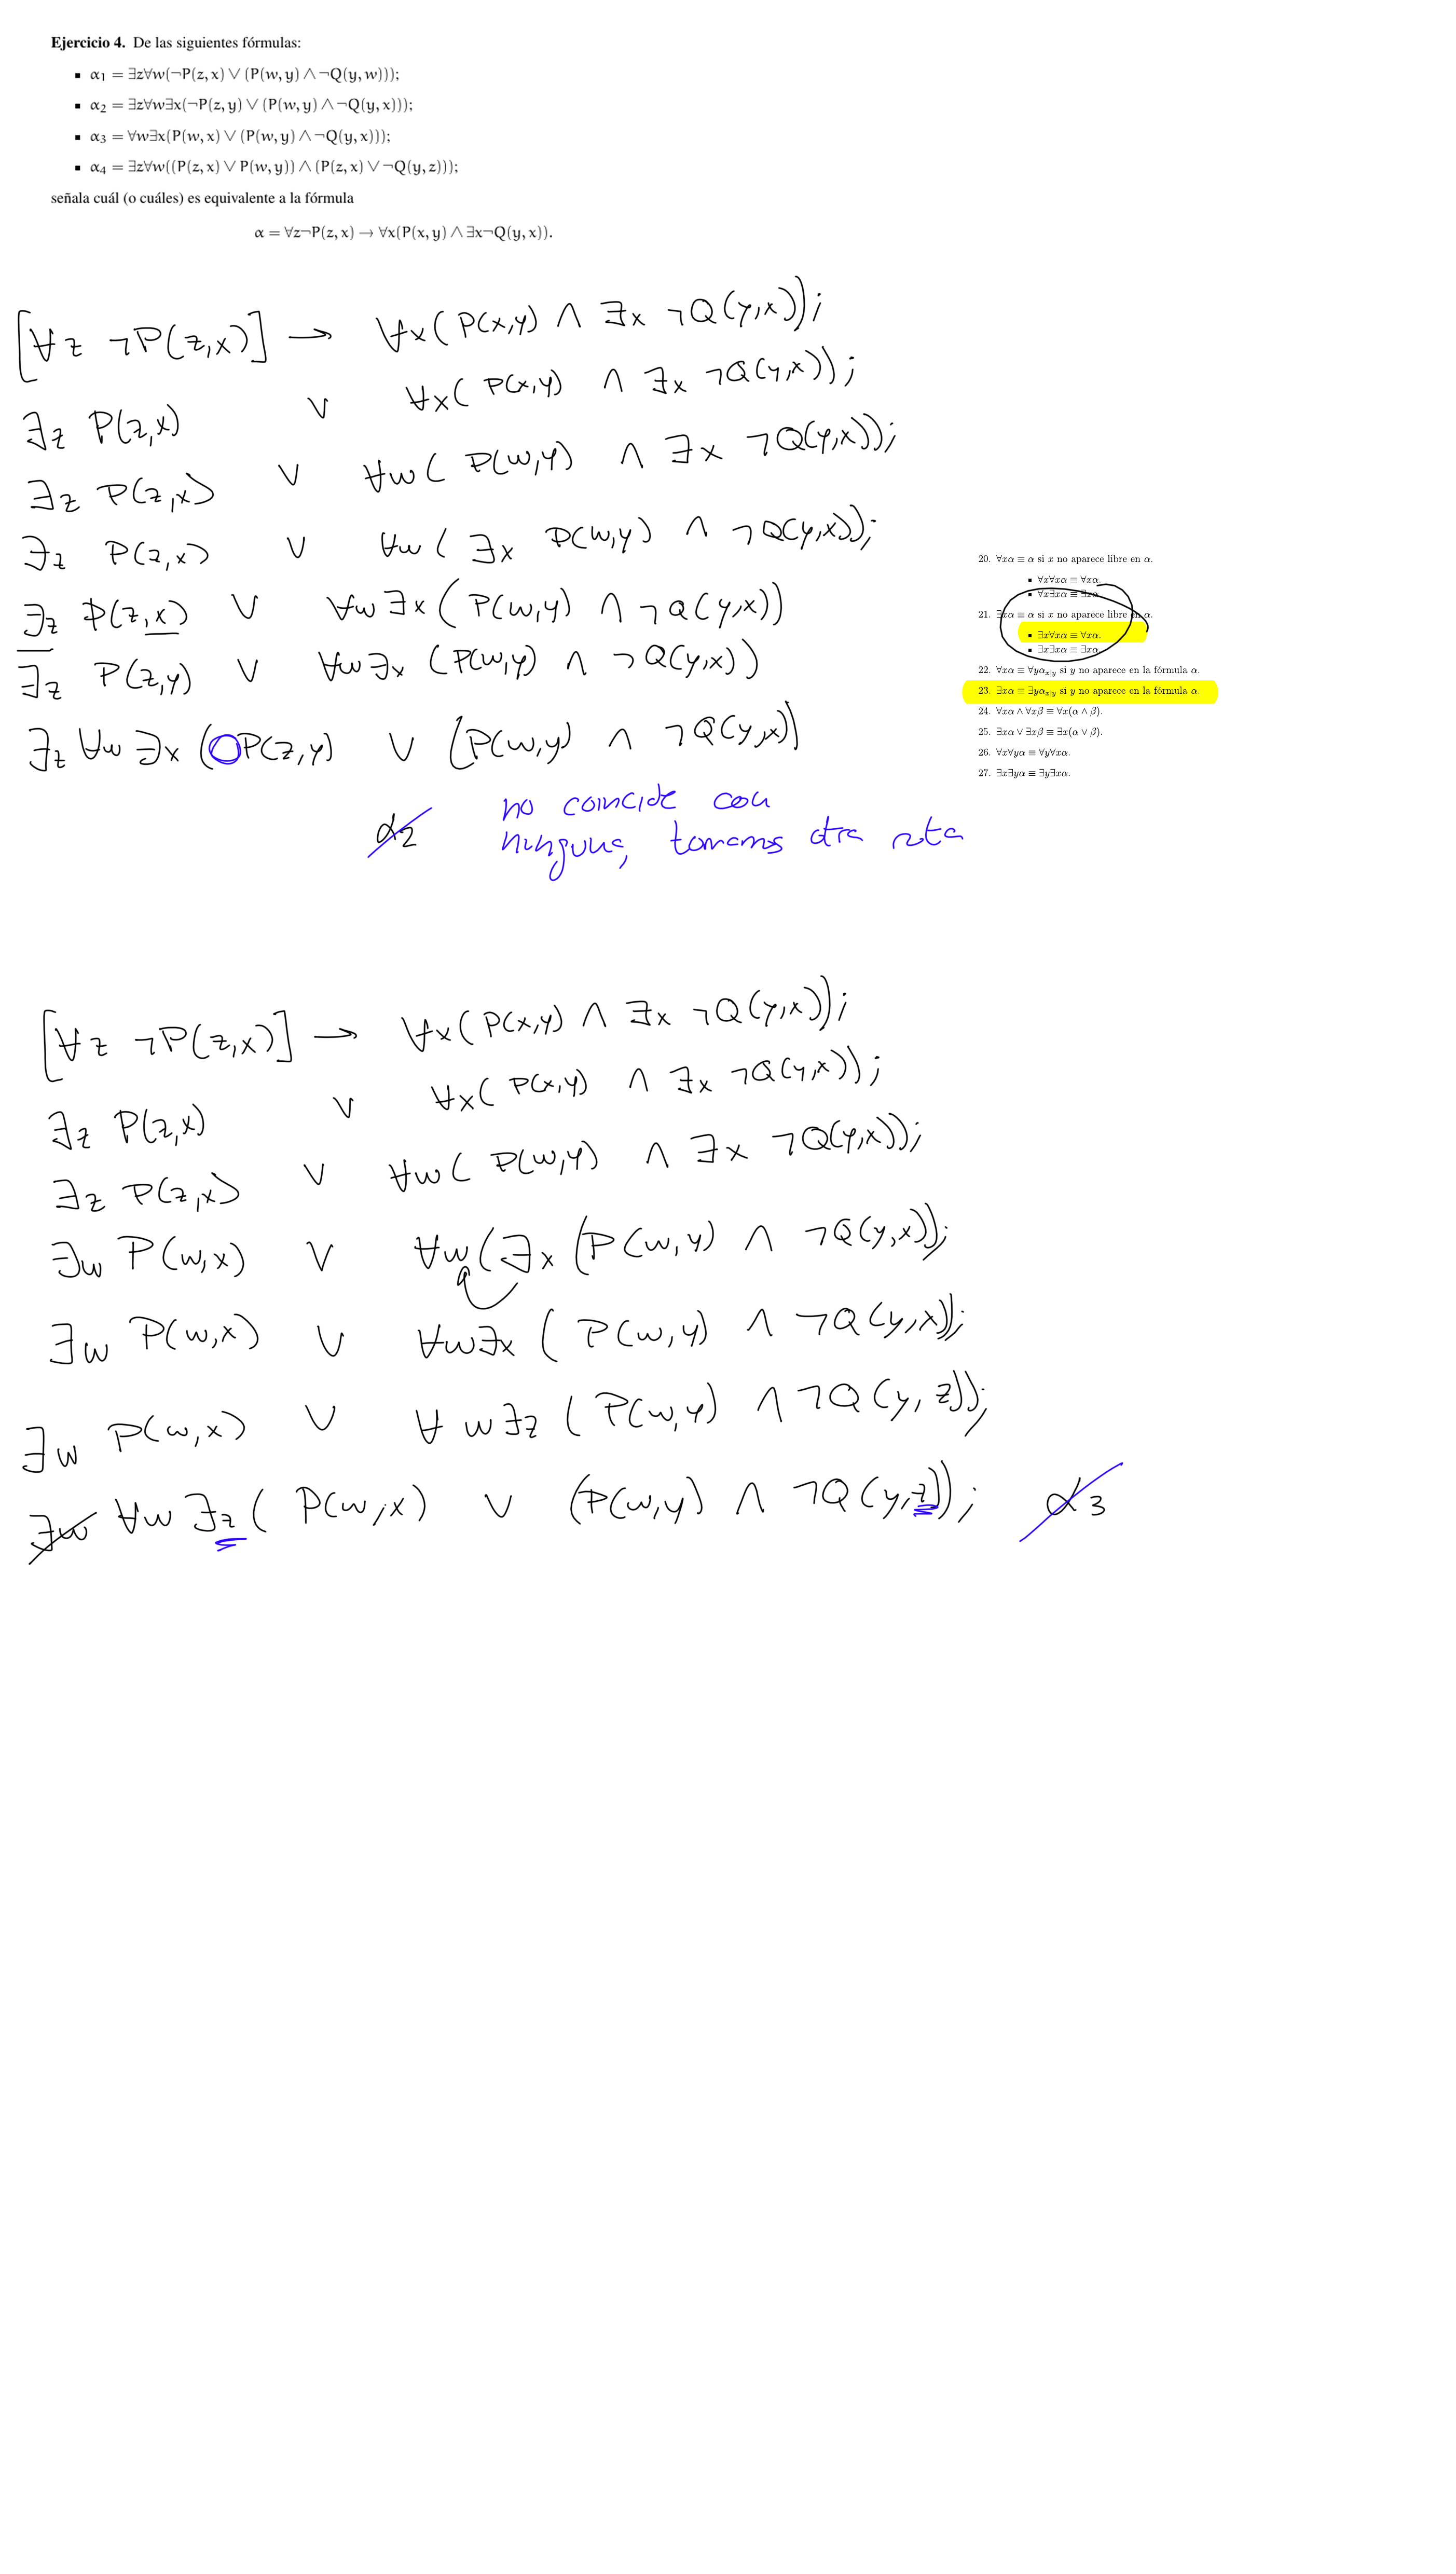 Ejercicio 4. De las siguientes fórmulas:
▪ α₁ = ∃z∀w(¬P(z, x) ∨ (P(w, y) ∧ ¬Q(y, w)));
▪ α₂ = ∃z∀w∃x(¬P(z, y) ∨ (P(w, y) ∧ ¬Q(y, x)));
▪ α₃ = ∀w∃x(P(w, x) ∨ (P(w, y) ∧ ¬Q(y, x)));
▪ α₄ = ∃z∀w((P(z, x) ∨ P(w, y)) ∧ (P(z, x) ∨ ¬Q(y, z)));
señala cuál (o cuáles) es equivalente a la fórmula
α = ∀z¬P(z, x) → ∀x(P(x, y) ∧ ∃x¬Q(y, x)).
[∀z ¬P(z,x)] → ∀x(P(x,y) ∧ ∃x ¬Q(y,x));
∃z P(z,x) ∨ ∀x(P(x,y) ∧ ∃x ¬Q(y,x));
∃z P(z,x) ∨ ∀w(P(w,y) ∧ ∃x ¬Q(y,x));
∃z P(z,x) ∨ ∀w(∃x P(w,y) ∧ ¬Q(y,x));
∃z P(z,x) ∨ ∀w∃x(P(w,y) ∧ ¬Q(y,x))
∃z P(z,y) ∨ ∀w∃x(P(w,y) ∧ ¬Q(y,x))
∃z ∀w ∃x (P(z,y) ∨ (P(w,y) ∧ ¬Q(y,x))
α₂ no coincide con
ninguna, tomamos otra ruta
20. ∀xα ≡ α si x no aparece libre en α.
▪ ∀x∀xα ≡ ∀xα.
▪ ∀x∃xα ≡ ∃xα.
21. ∃xα ≡ α si x no aparece libre en α.
▪ ∃x∀xα ≡ ∀xα.
▪ ∃x∃xα ≡ ∃xα.
22. ∀xα ≡ ∀yαx|y si y no aparece en la fórmula α.
23. ∃xα ≡ ∃yαx|y si y no aparece en la fórmula α.
24. ∀xα ∧ ∀xβ ≡ ∀x(α ∧ β).
25. ∃xα ∨ ∃xβ ≡ ∃x(α ∨ β).
26. ∀x∀yα ≡ ∀y∀xα.
27. ∃x∃yα ≡ ∃y∃xα.
[∀z ¬P(z,x)] → ∀x(P(x,y) ∧ ∃x ¬Q(y,x));
∃z P(z,x) ∨ ∀x(P(x,y) ∧ ∃x ¬Q(y,x));
∃z P(z,x) ∨ ∀w(P(w,y) ∧ ∃x ¬Q(y,x));
∃w P(w,x) ∨ ∀w(∃x (P(w,y) ∧ ¬Q(y,x));
∃w P(w,x) ∨ ∀w∃x (P(w,y) ∧ ¬Q(y,x));
∃w P(w,x) ∨ ∀w∃z (P(w,y) ∧ ¬Q(y,z));
∃w ∀w ∃z (P(w,x) ∨ (P(w,y) ∧ ¬Q(y,z)); α₃